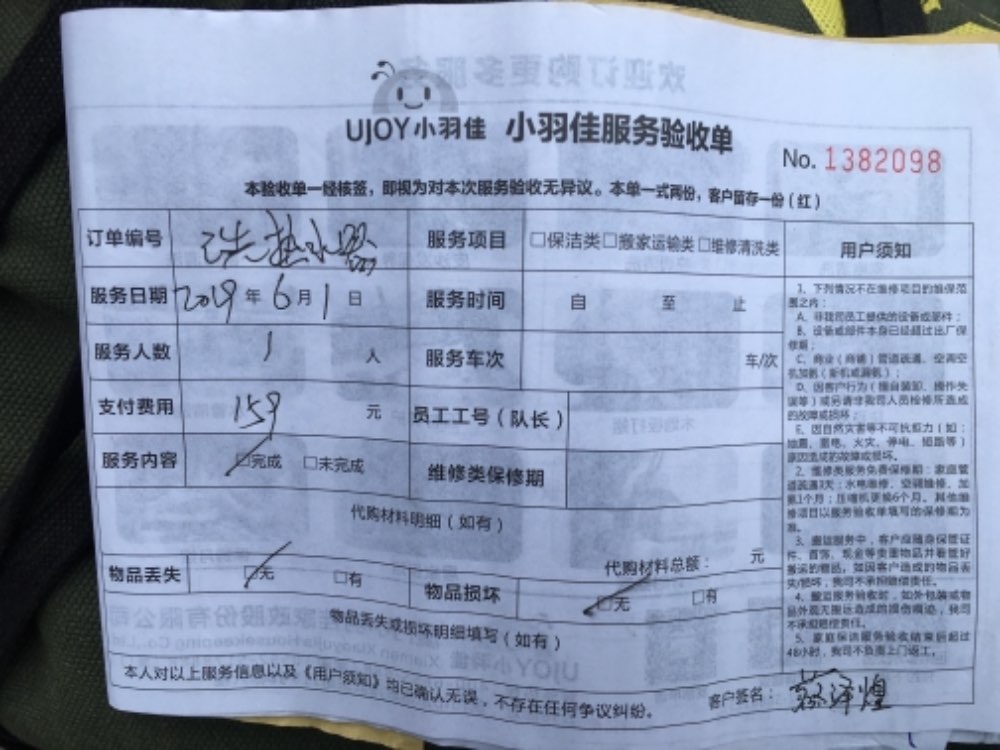 UJOY小羽佳 小羽佳服务验收单
No. 1382098
本验收单一经核签，即视为对本次服务验收无异议。本单一式两份，客户留存一份（红）
订单编号 洗热水器 服务项目 □保洁类□搬家运输类□维修清洗类
服务日期 2019年6月1日 服务时间 自 至 止
服务人数 1 人 服务车次 车/次
支付费用 159 元 员工工号（队长）
服务内容 □完成 □未完成 维修类保修期
代购材料明细（如有）
代购材料总额： 元
物品丢失 □无 □有 物品损坏 □无 □有
物品丢失或损坏明细填写（如有）
本人对以上服务信息以及《用户须知》均已确认无误，不存在任何争议纠纷。
客户签名：
用户须知
1、下列情况不在维修项目的维保范
围之内：
A、非我司员工提供的设备或部件；
B、设备或部件本身已经超过出厂保
修期；
C、商业（商铺）管道疏通、空调空
机加氨（新机或漏氨）；
D、因客户行为（擅自装卸、操作失
误等）或另请非我司人员检修所造成
的故障或损坏；
E、因自然灾害等不可抗拒力（如：
地震、雷电、火灾、停电、短路等）
原因造成的故障或损坏。
2、维修类服务免费保修期：家庭管
道疏通3天；水电维修、空调维修、加
氨1个月；压缩机更换6个月。其他维
修项目以服务验收单填写的保修期为
准。
3、搬运服务中，客户应随身保管证
件、首饰、现金等贵重物品并看管好
搬运的物品，如因客户造成的物品丢
失/损坏，我司不承担赔偿责任。
4、搬运服务验收时，如外包装或物
品外观无搬运造成的损伤痕迹，我司
不承担赔偿责任。
5、家庭保洁服务验收结束后超过
48小时，我司不负责上门返工。